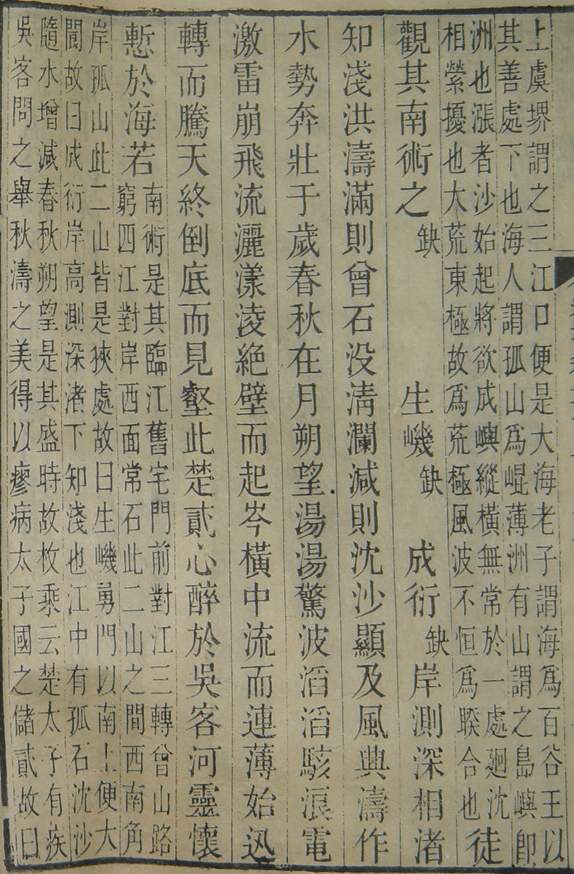 上虞堺謂之三江口便是大海老子謂海為百谷王以
其善處下也海人謂孤山為崐薄洲有山謂之島嶼即
洲也漲者沙始起將欲成嶼縱橫無常於一處廻沈
相縈擾也大荒東極故為荒極風波不恒為睽合也
徒
觀其南術之缺 生缺 成衍缺岸測深相渚
知淺洪濤滿則曾石没清瀾減則沈沙顯及風興濤作
水勢奔壯于歲春秋在月朔望湯湯驚波滔滔駭浪電
激雷崩飛流灑漾淩絶壁而起岑橫中流而連薄始迅
轉而騰天終倒底而見壑此楚貳心醉於吳客河靈懷
慙於海若
南術是其臨江舊宅門前對江三轉曾山路
窮四江對岸西面常石此二山之間西南角
岸孤山此二山皆是狹處故曰生勇門以南上便大
聞故曰成衍岸高測深渚下知淺也江中有孤石沈沙
隨水增減春秋朔望是其盛時故枚乘云楚太子有疾
吳客問之舉秋濤之美得以瘳病太子國之儲貳故曰